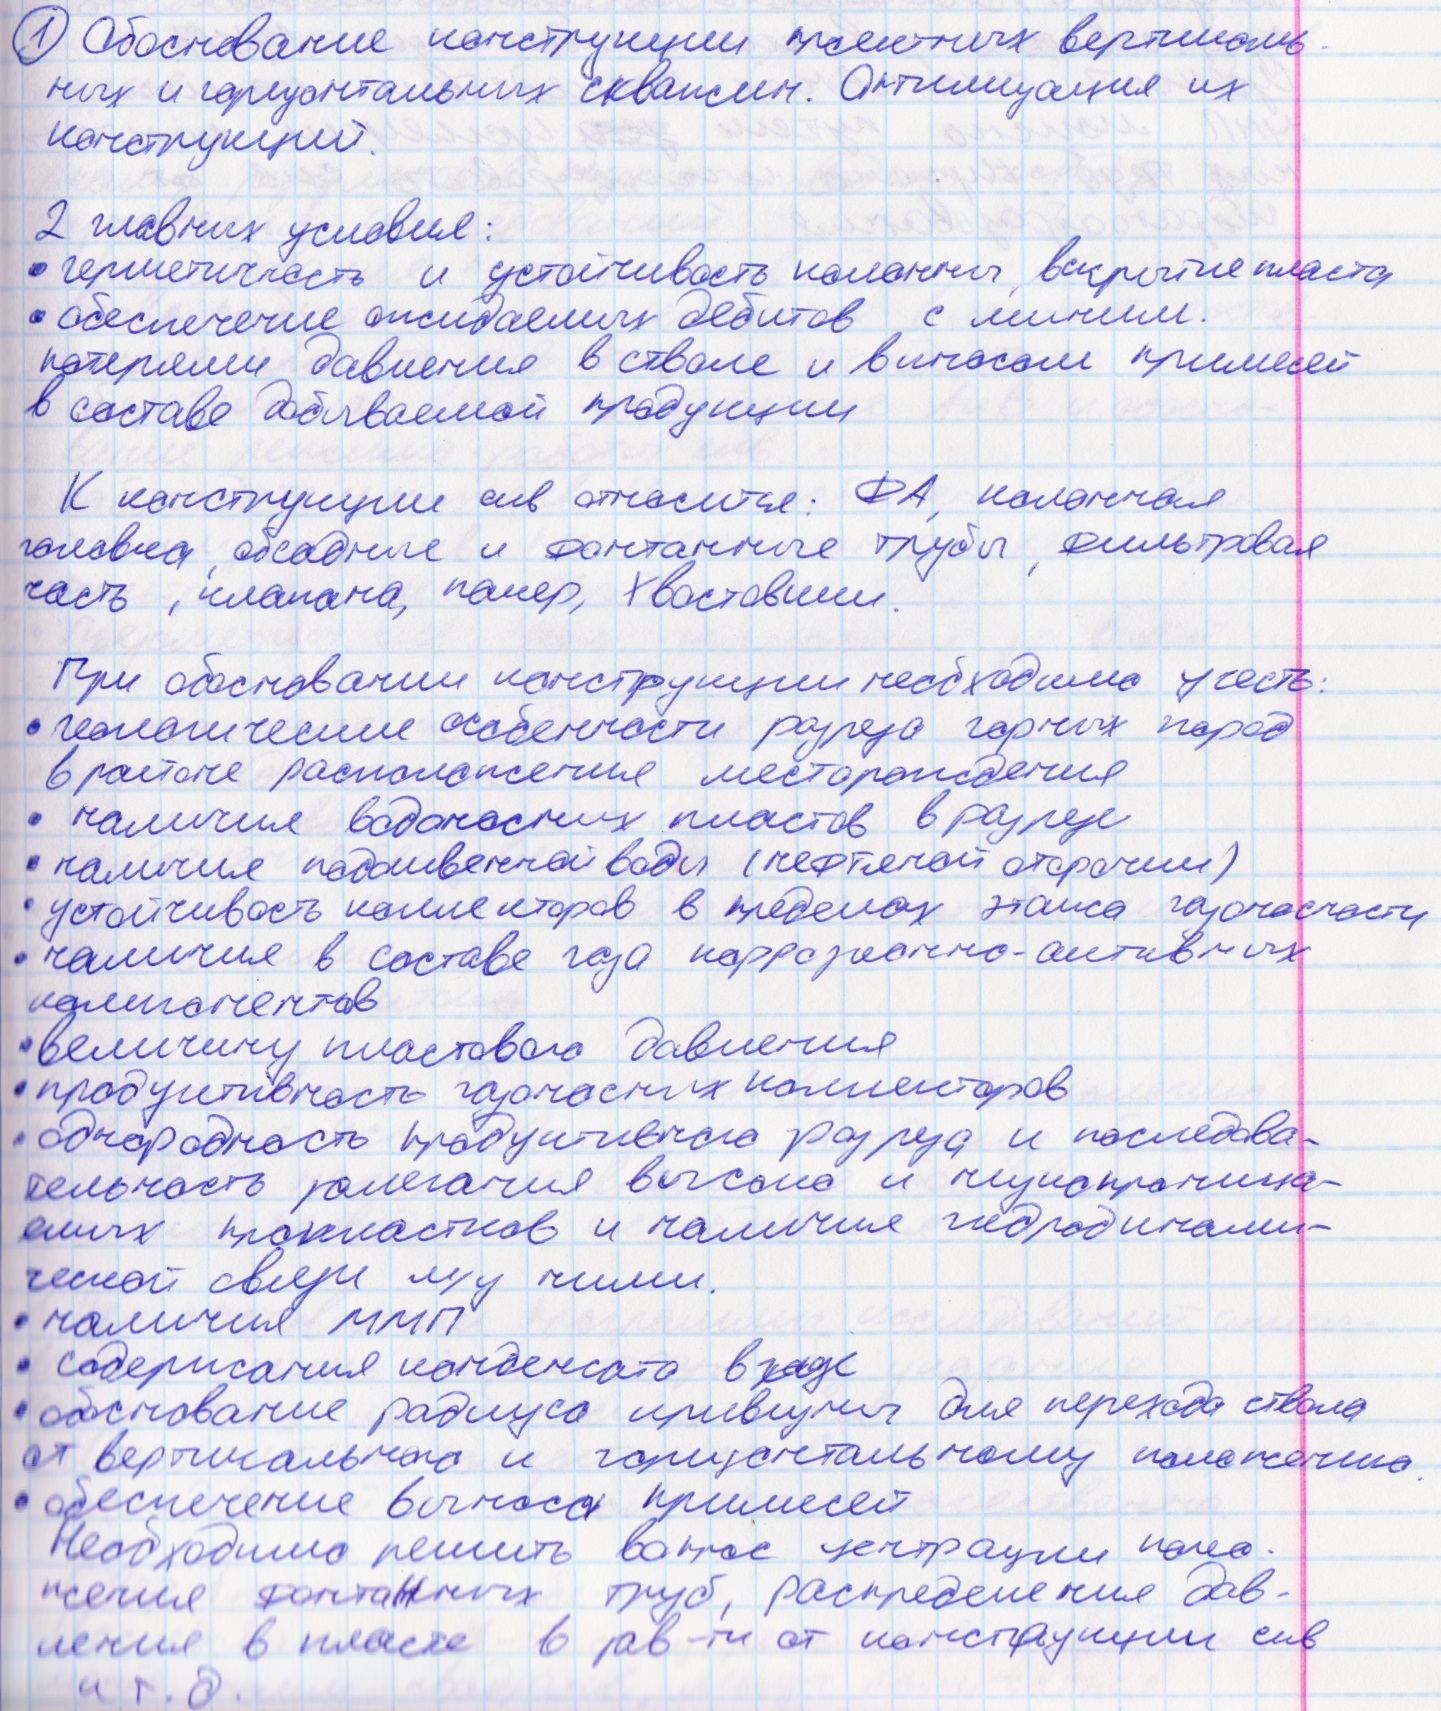 ① Обоснование конструкции проектных вертикаль-
ных и горизонтальных скважин. Оптимизация их
конструкций.
2 главных условия:
• герметичность и устойчивость колонны, вскрытие пласта
• обеспечение ожидаемых дебитов с миним.
потерями давления в стволе и выносом примесей
в составе добываемой продукции
К конструкции скв относится: ФА, колонная
головка, обсадные и фонтанные трубы, фильтровая
часть, клапана, пакер, хвостовики.
При обосновании конструкции необходимо учесть:
• геологические особенности разреза горных пород
в районе расположения месторождения
• наличия водоносных пластов в разрезе
• наличие подошвенной воды (нефтяной оторочки)
• устойчивость коллекторов в пределах этажа газоносности
• наличия в составе газа коррозионно-активных
компонентов
• величину пластового давления
• продуктивность газоносных коллекторов
• однородность продуктивного разреза и последова-
тельность залегания высоко и низкопроница-
емых пропластков и наличия гидродинами-
ческой связи м/у ними.
• наличия ММП
• содержания конденсата в газе
• обоснование радиуса кривизны для перехода ствола
от вертикального к горизонтальному положению.
• обеспечение выноса примесей
Необходимо решить вопрос центрации поло-
жения фонтанных труб, распределения дав-
ления в пласте в зав-ти от конструкции скв
и т.д.